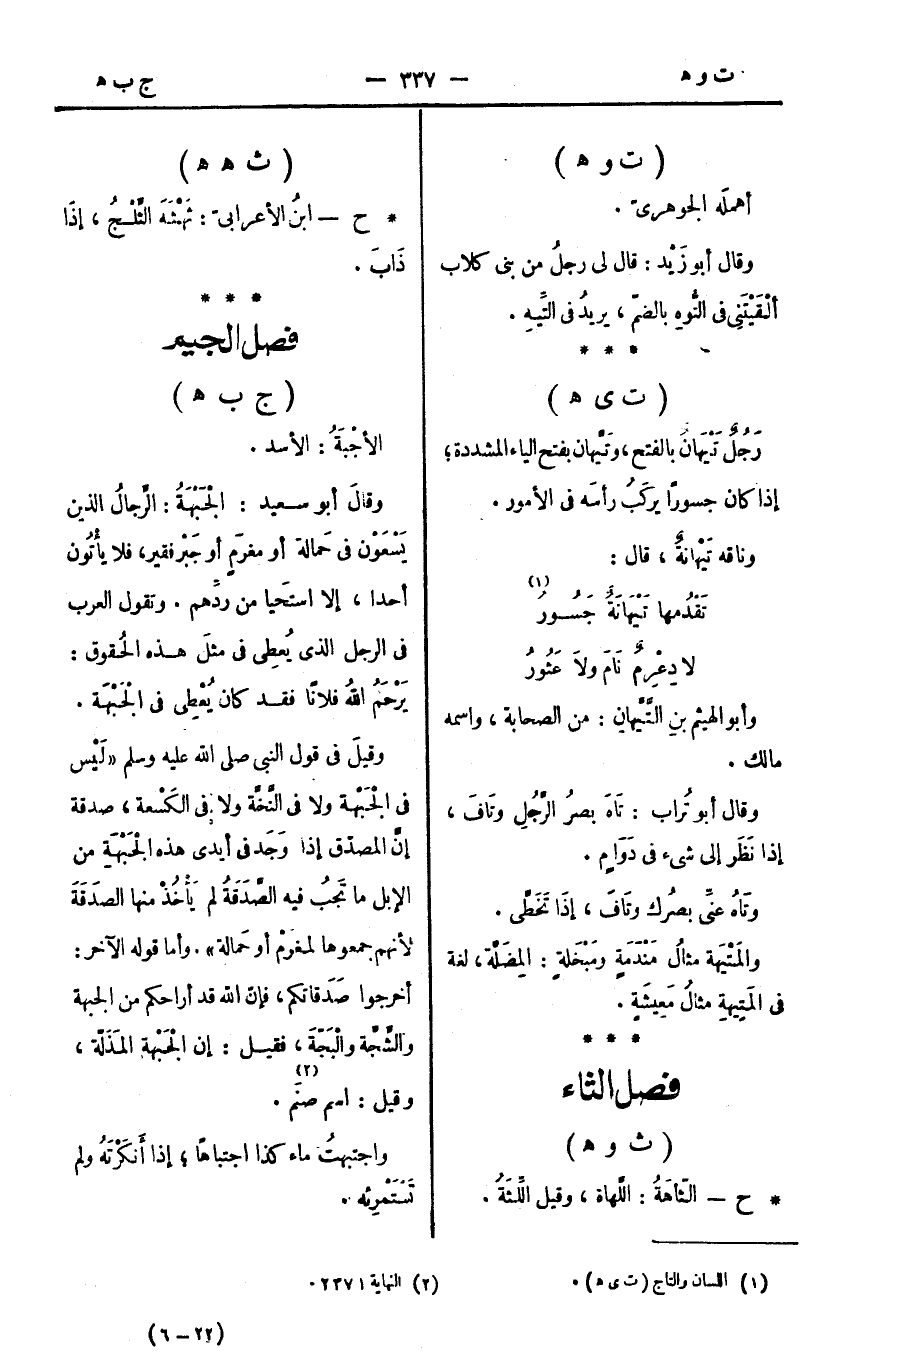 ت و ه
— ٣٣٧ —
ج ب ه
( ت و ه )
أهمله الجوهرى .
وقال أبو زَيْد : قال لى رجلُ من بنى كلاب
أَلْقَيْتَنِى فى التُّوهِ بالضمّ ، يريدُ فى التِّيهِ .
* * *
( ت ى ه )
رَجُلٌ تَيْهَانُ بالفتح ، وتَيَّهان بفتح الياء المشددة ؛
إذا كان جسورًا يركَبُ رأسَه فى الأمور .
وناقه تَيْهانةٌ ، قال :
تَقْدُمها تَيْهَانَةٌ جَسُـورُ (١)
لا دِعْرِمٌ نَامَ ولاَ عَثُورُ
وأبو الهيثم بنِ التَّيَّهانِ : من الصحابة ، واسمه
مالك .
وقال أبو تُراب : تَاهَ بصرُ الرَّجُلِ وتَافَ ،
إذا نَظَر إلى شىء فى دَوَامٍ .
وتَاهُ عنِّى بصرُك وتَافَ ، إذَا تَخَطَّى .
والمَتْيَهة مثالُ مَنْدَمَةٍ ومَبْخَلةٍ : المِضَلَّة ، لغة
فى المَتِيهةِ مثالُ مَعِيشَةٍ .
* * *
فصل الثاء
( ث و ه )
* ح — الثاهَةُ : اللَّهاة ، وقيل اللِّثَةُ .
( ث ه ه )
* ح — ابنُ الأعرابى : ثَهْثَهَ الثَّلْـجُ ، إذَا
ذَابَ .
* * *
فصل الجيم
( ج ب ه )
الأجْبَهُ : الأسد .
وقالَ أبو سـعيد : الْجَبْهَةُ : الرِّجالُ الذين
يَسْعَوْن فى حَمالة أو مغرَمٍ أو جَبْر فقير ، فلا يأْتُون
أحدا ، إلا استَحيا من ردِّهم . وتقول العرب
فى الرجل الذى يُعطِى فى مثلَ هـذه الحُقوق :
يَرْحَمُ اللهُ فلانًا فقـد كان يُعْطِى فى الْجَبْهَة .
وقيلَ فى قول النبى صلى الله عليه وسلم « لَيْس
فى الْجَبْهَة ولا فى النَّخَّة ولا فى الكَسْعة ، صدقة
إنَّ المصدّق إذا وَجَد فى أيدى هذه الْجَبْهَةِ من
الإبل ما تَجَبُ فيه الصَّدَقَةُ لم يَأْخُذْ منها الصدَقَةَ
لأنهم جمعوها لمغرمْ أو حَمالة » . وأما قوله الآخر :
أخرجوا صَدَقاتكم ، فإن الله قد أراحكم من الجبهة
والشَّجَّة والْبَجّة ، فقيـل : إن الْجَبْهةَ المَذَلّة ،
وقيل : اسم صنَم (٢) .
واجتبهتُ ماء كذا اجتباهًا ؛ إذا أَنكَرْتَهُ ولم
تَسْتَمْرِئه .
(١) اللسان والتاج ( ت ى ه ) .
(٢) النهاية ١ ٢٣٧ .
(٢٢ — ٦)